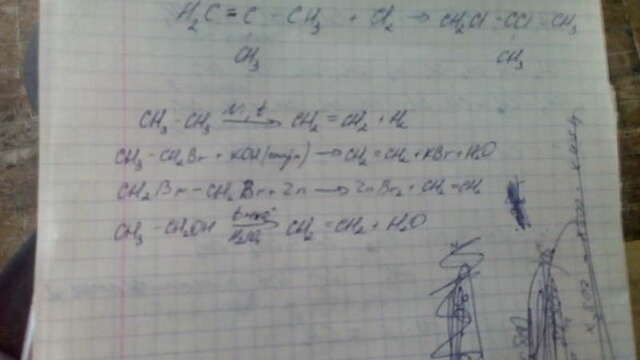 H2C = C - CH3 + Cl2 → CH2Cl - CCl - CH3
CH3 CH3
CH3 - CH3 Ni, t → CH2 = CH2 + H2
CH3 - CH2Br + KOH → CH2 = CH2 + KBr + H2O
CH2Br - CH2Br + Zn → ZnBr2 + CH2 = CH2
CH3 - CH2OH H2SO4 → CH2 = CH2 + H2O